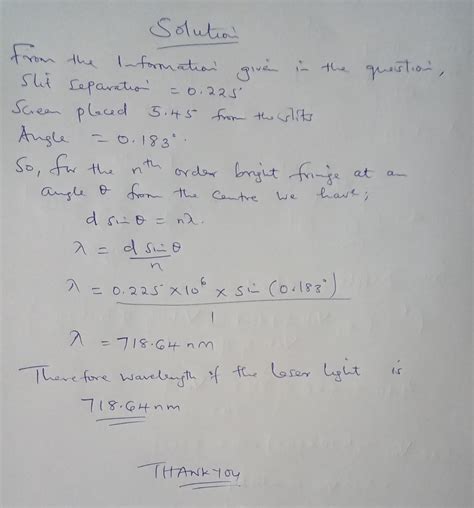 Solution
From the Information given in the question,
Slit separation = 0.225
Screen placed 5.45 from the slits
Angle = 0.183°.
So, for the nth order bright fringe at an
angle θ from the centre we have;
d sin θ = nλ.
λ = d sin θ / n
λ = 0.225 × 10⁶ × sin (0.183°) / 1
λ = 718.64 nm
Therefore wavelength of the laser light is
718.64nm
THANK YOU